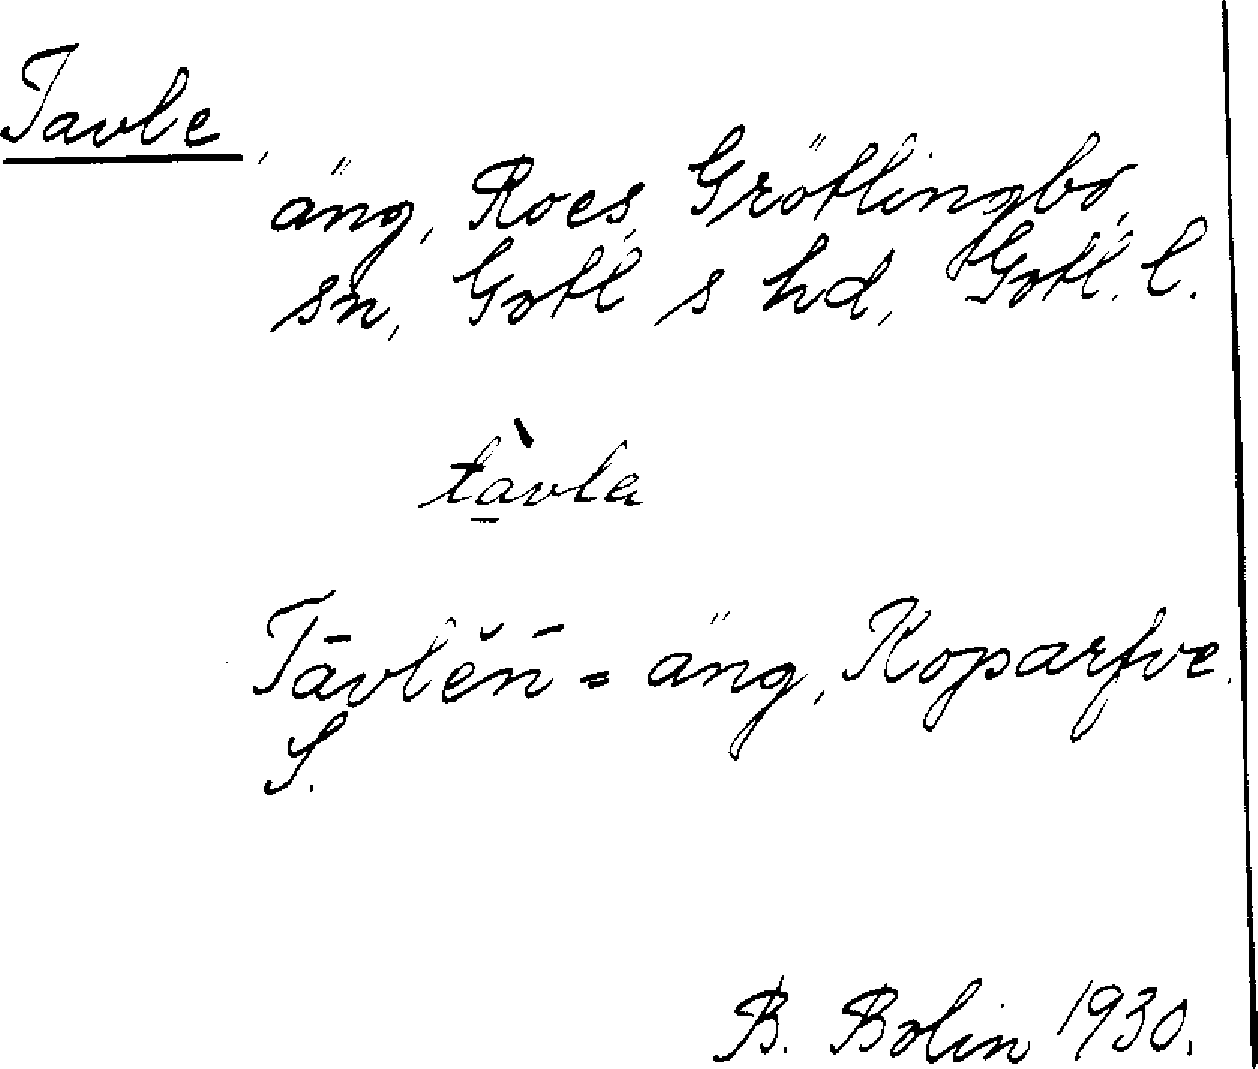 Tavle,
äng, Roes, Grötlingbo,
sn, Gotl s hd, Gotl. l.
tàvla
Tāvlĕn̄ = äng, Koparfve.
S.
B. Bolin 1930.